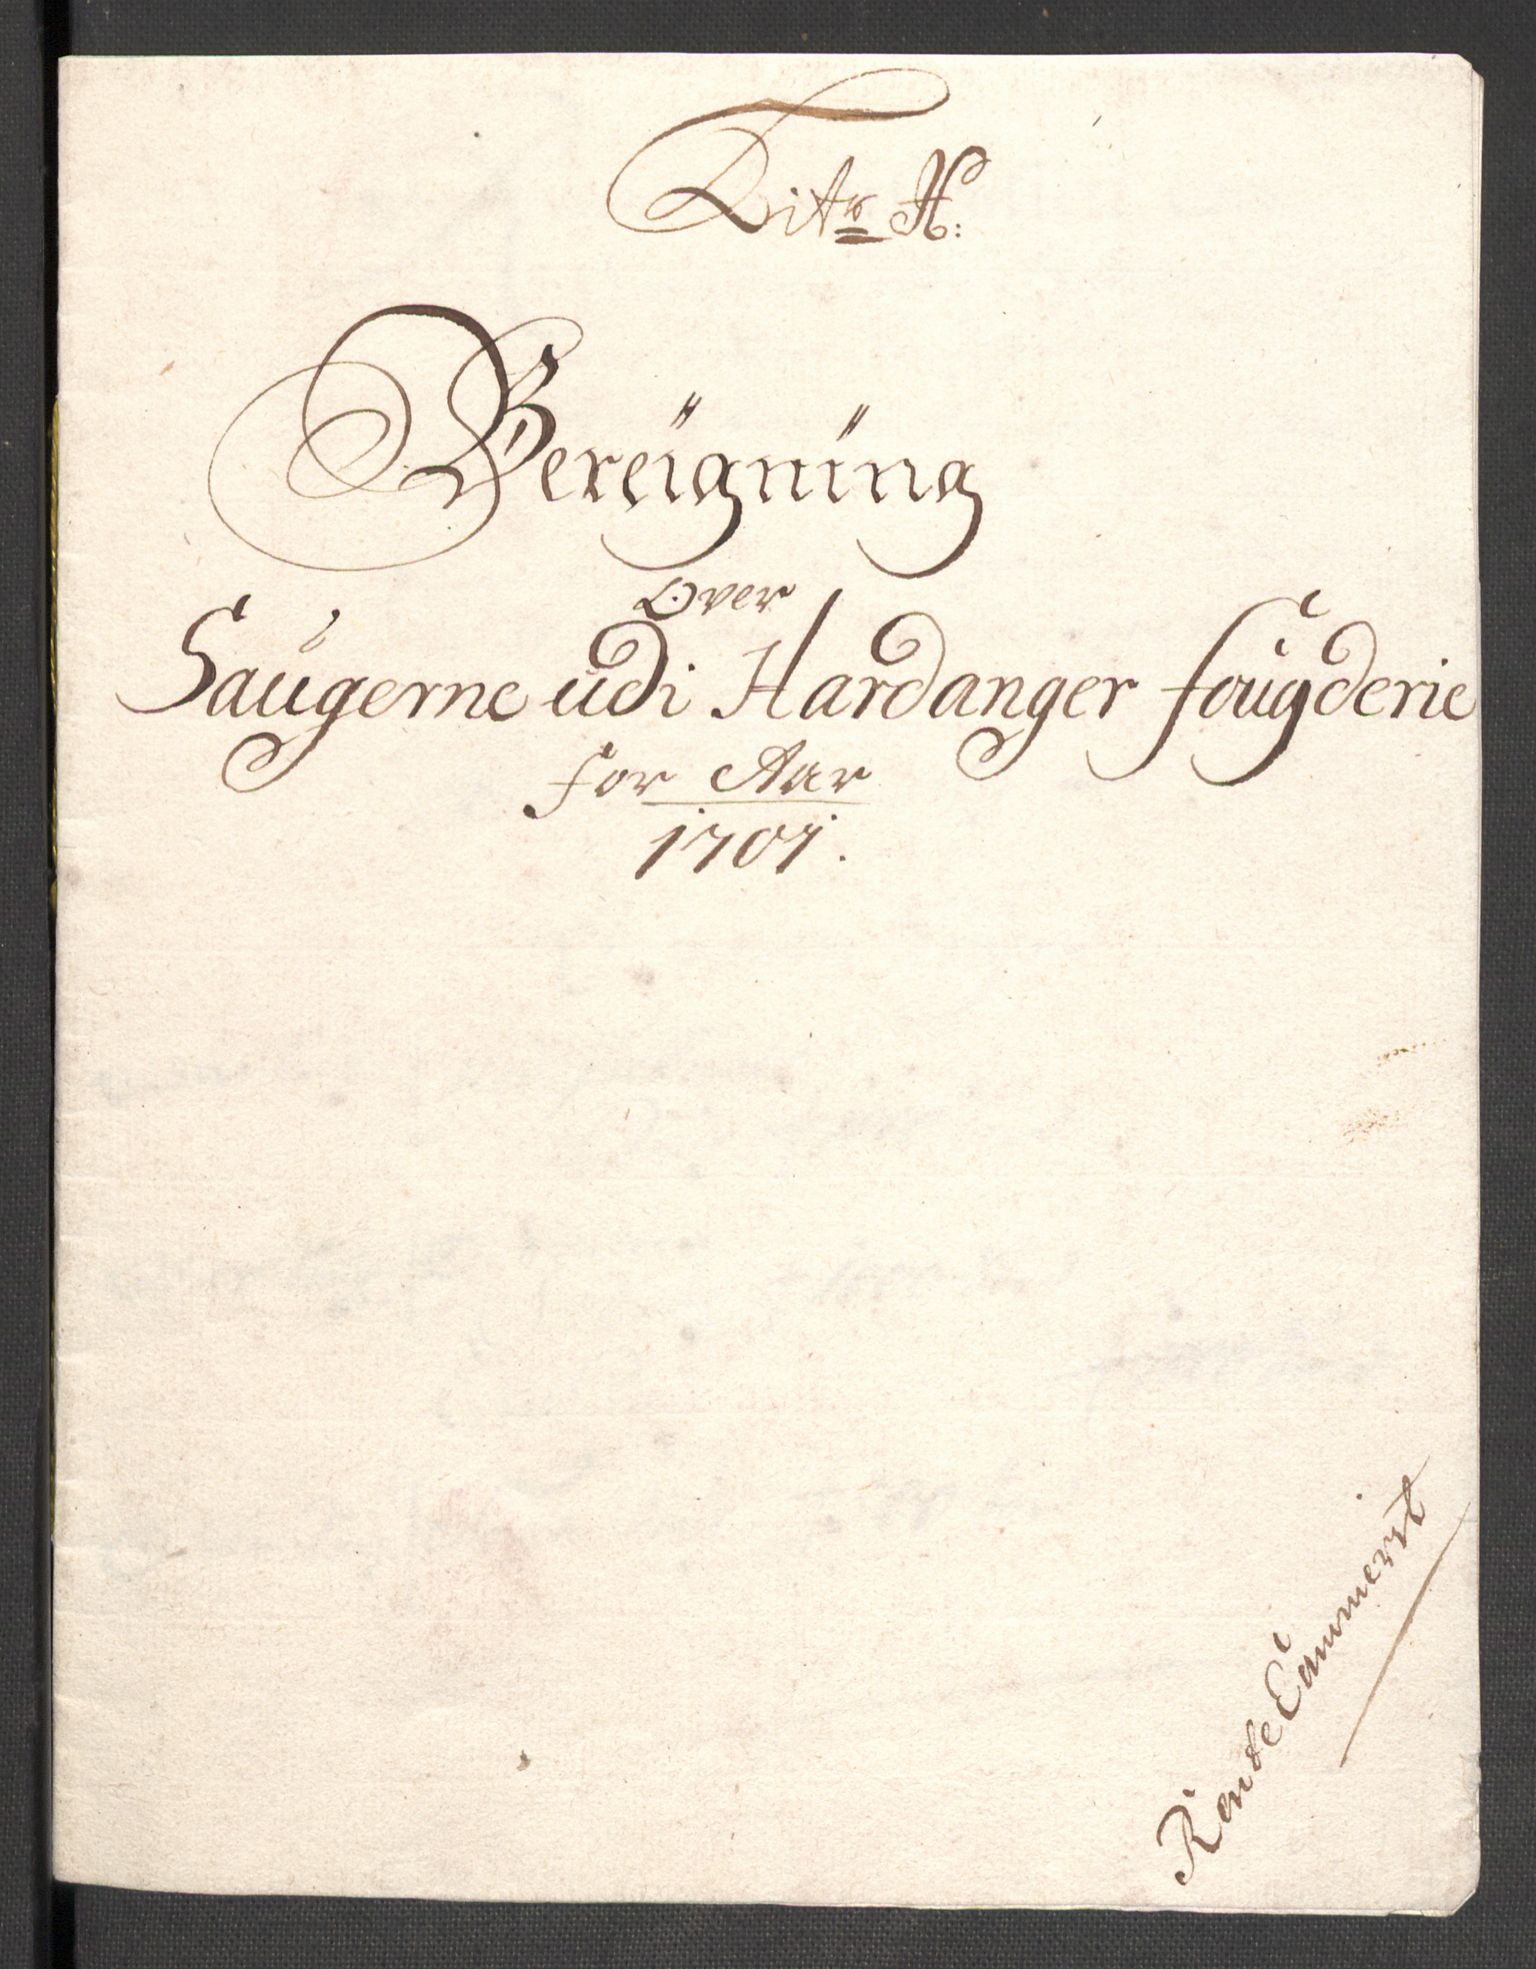 Litr H:
Bereigning
Over
Saugerne udi Hardanger fougderie
for Aar
1707.
Rende Cammerit